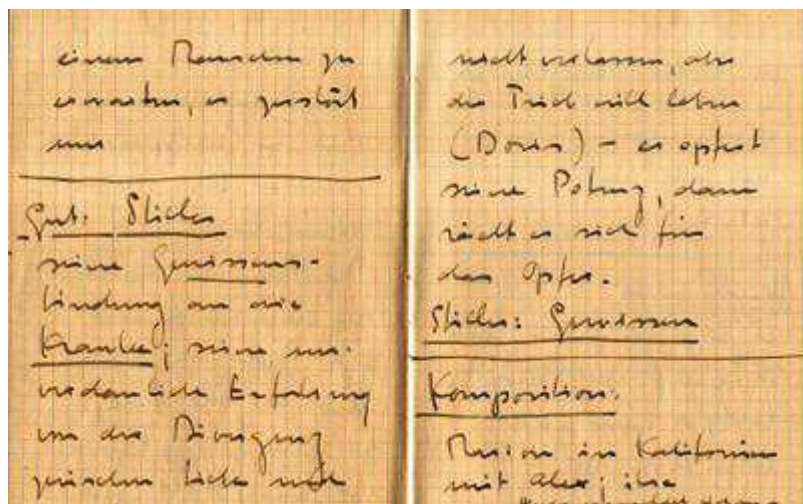 einem Menschen zu
erwarten, er zerstört
uns
Gut: Stiller
seine Gewissens-
bindung an die
Kranke; seine un-
verdauliche Erfahrung
um die Bewegung
zwischen Liebe und
nicht verlassen, aber
der Trieb will leben
(Doris) – er opfert
seine Potenz, dann
rächt er sich für
das Opfer.
Stiller: Gewissen
Komposition:
in Kalifornien
mit Alex; ihre